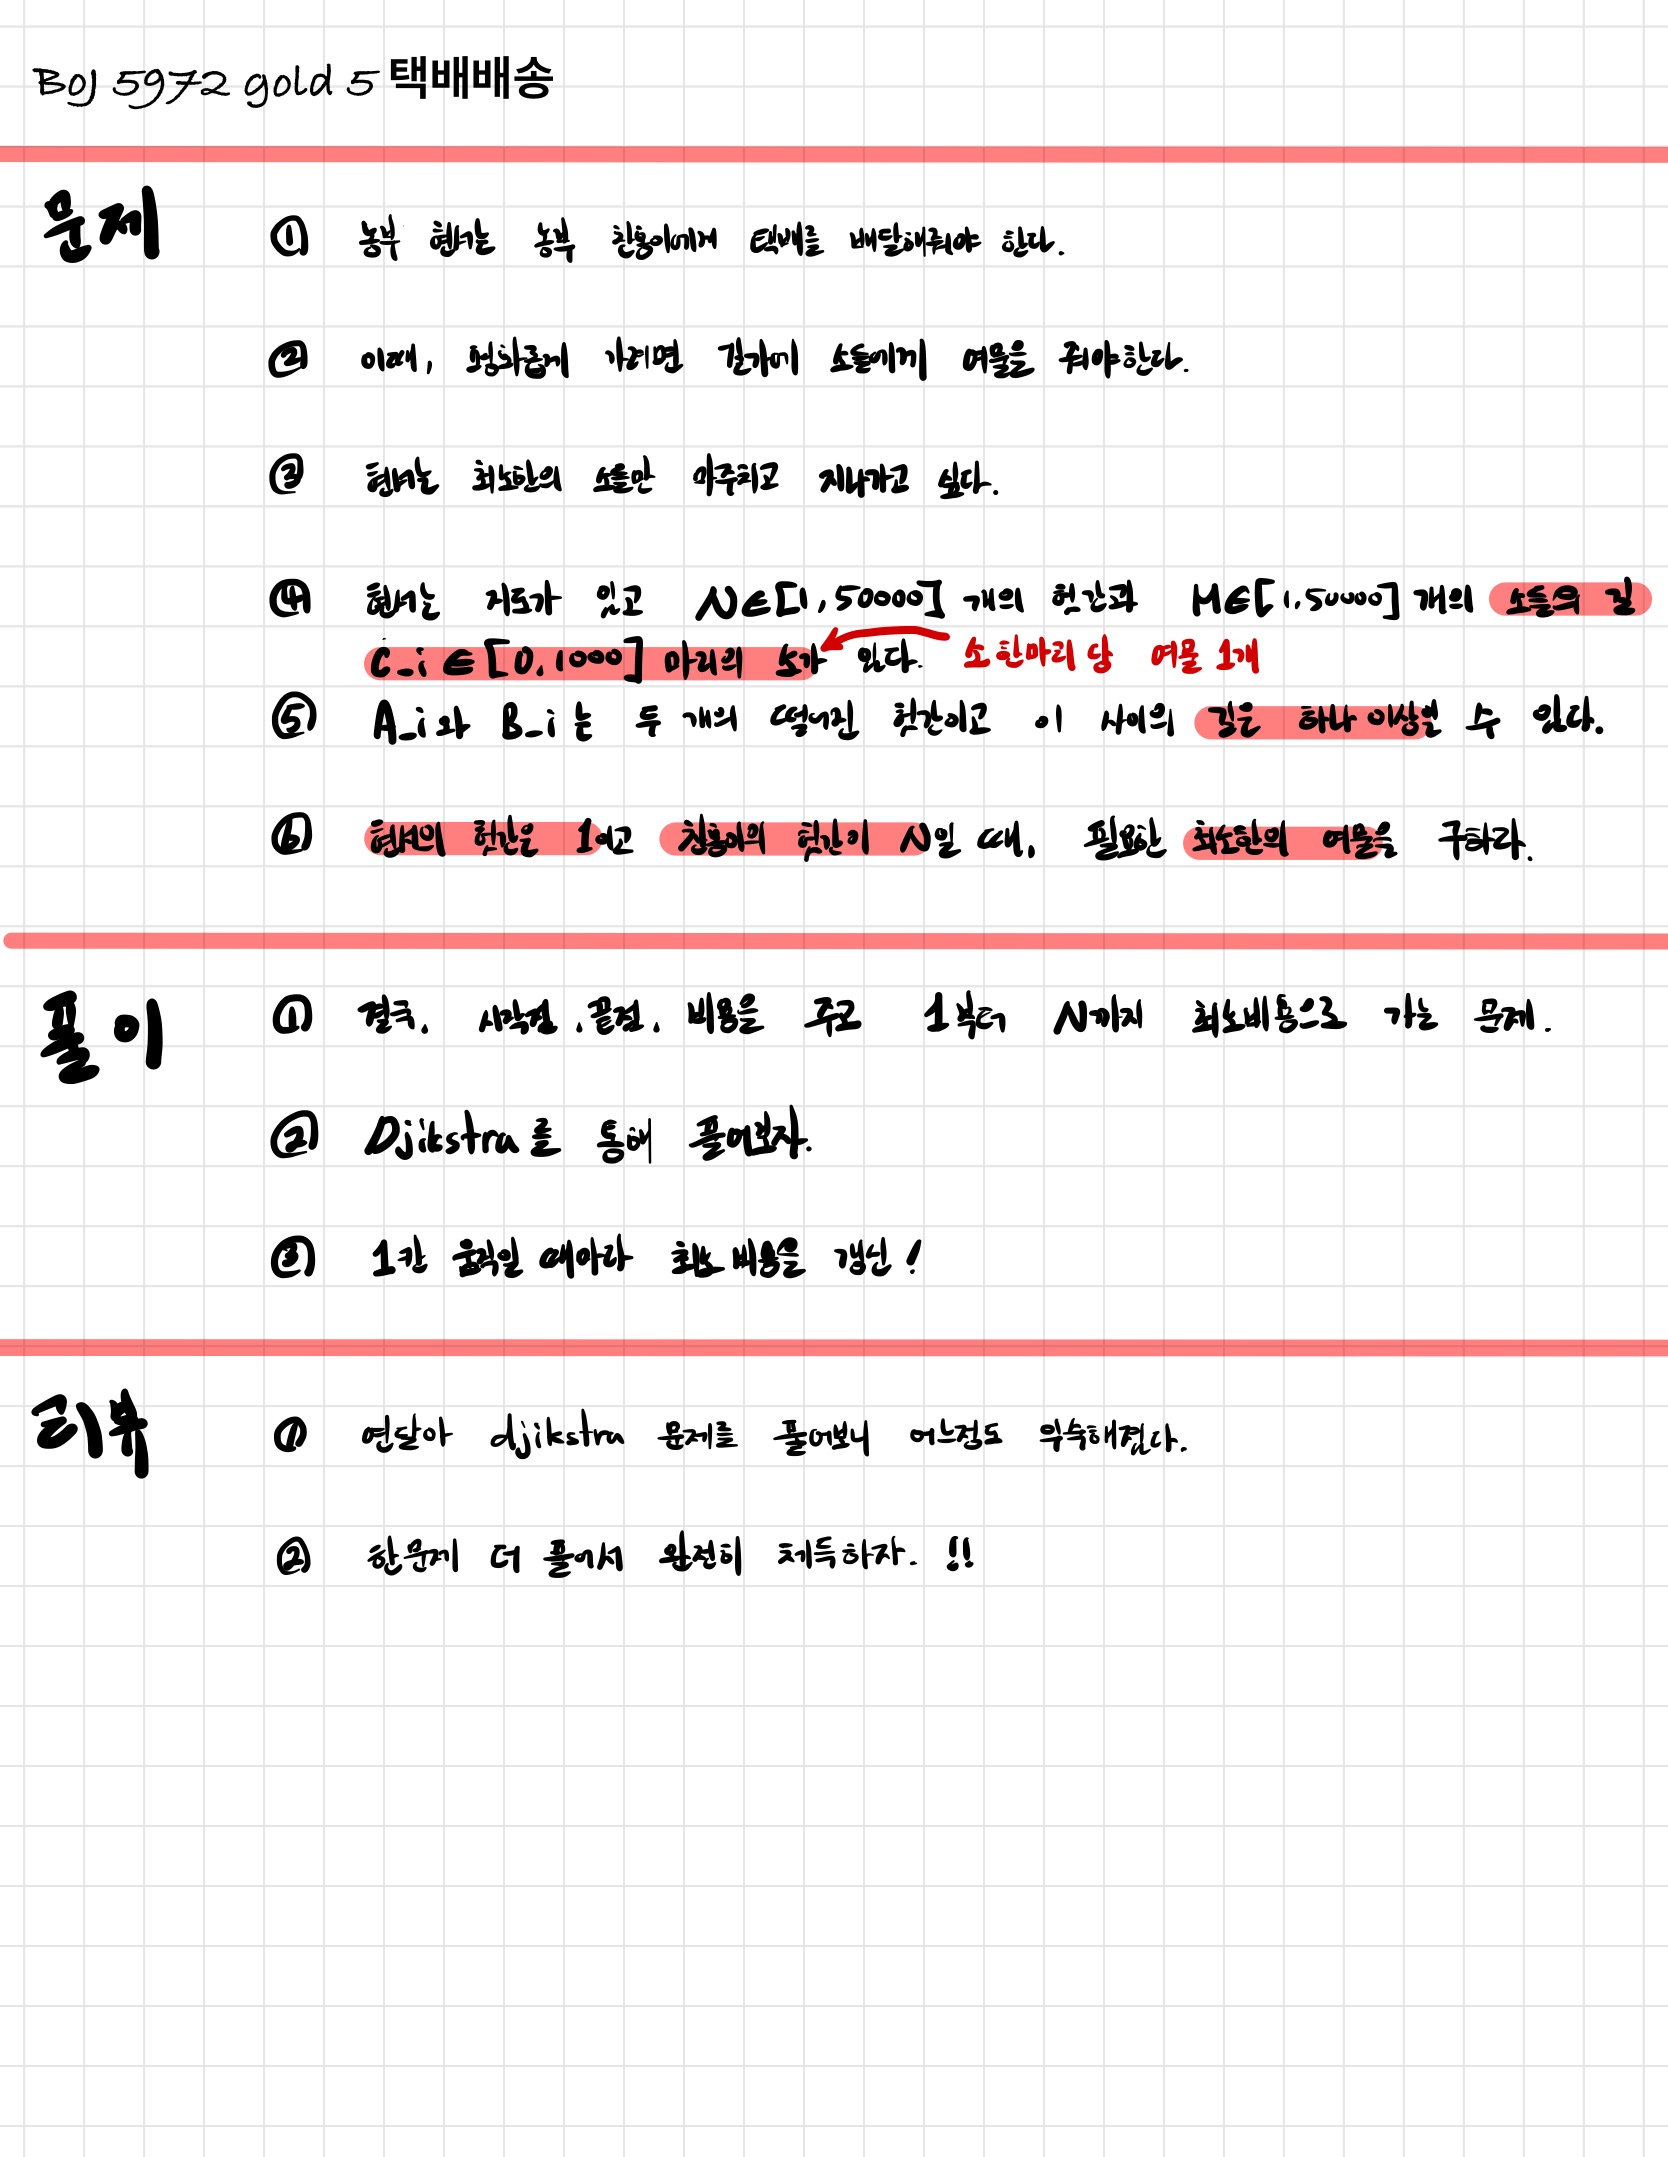 BOJ 5972 gold 5 택배배송
문제
① 농부 현서는 농부 찬홍이에게 택배를 배달해줘야 한다.
② 이때, 평화롭게 가려면 길가에 소들에게 여물을 줘야한다.
③ 현서는 최소한의 소들만 마주치고 지나가고 싶다.
④ 현서는 지도가 있고 N∈[1,50000] 개의 헛간과 M∈[1,50000] 개의 소들의 길
C_i∈[0,1000] 마리의 소가 있다. 소 한마리 당 여물 1개
⑤ A_i와 B_i는 두 개의 떨어진 헛간이고 이 사이의 길은 하나 이상일 수 있다.
⑥ 현서의 헛간은 1이고 찬홍이의 헛간이 N일 때, 필요한 최소한의 여물을 구하라.
풀이
① 결국, 시작점, 끝점, 비용을 주고 1부터 N까지 최소비용으로 가는 문제.
② Djikstra를 통해 풀어보자.
③ 1칸 움직일 때마다 최소 비용을 갱신!
리뷰
① 연달아 djikstra 문제를 풀어보니 어느정도 익숙해졌다.
② 한문제 더 풀어서 완전히 체득하자. !!